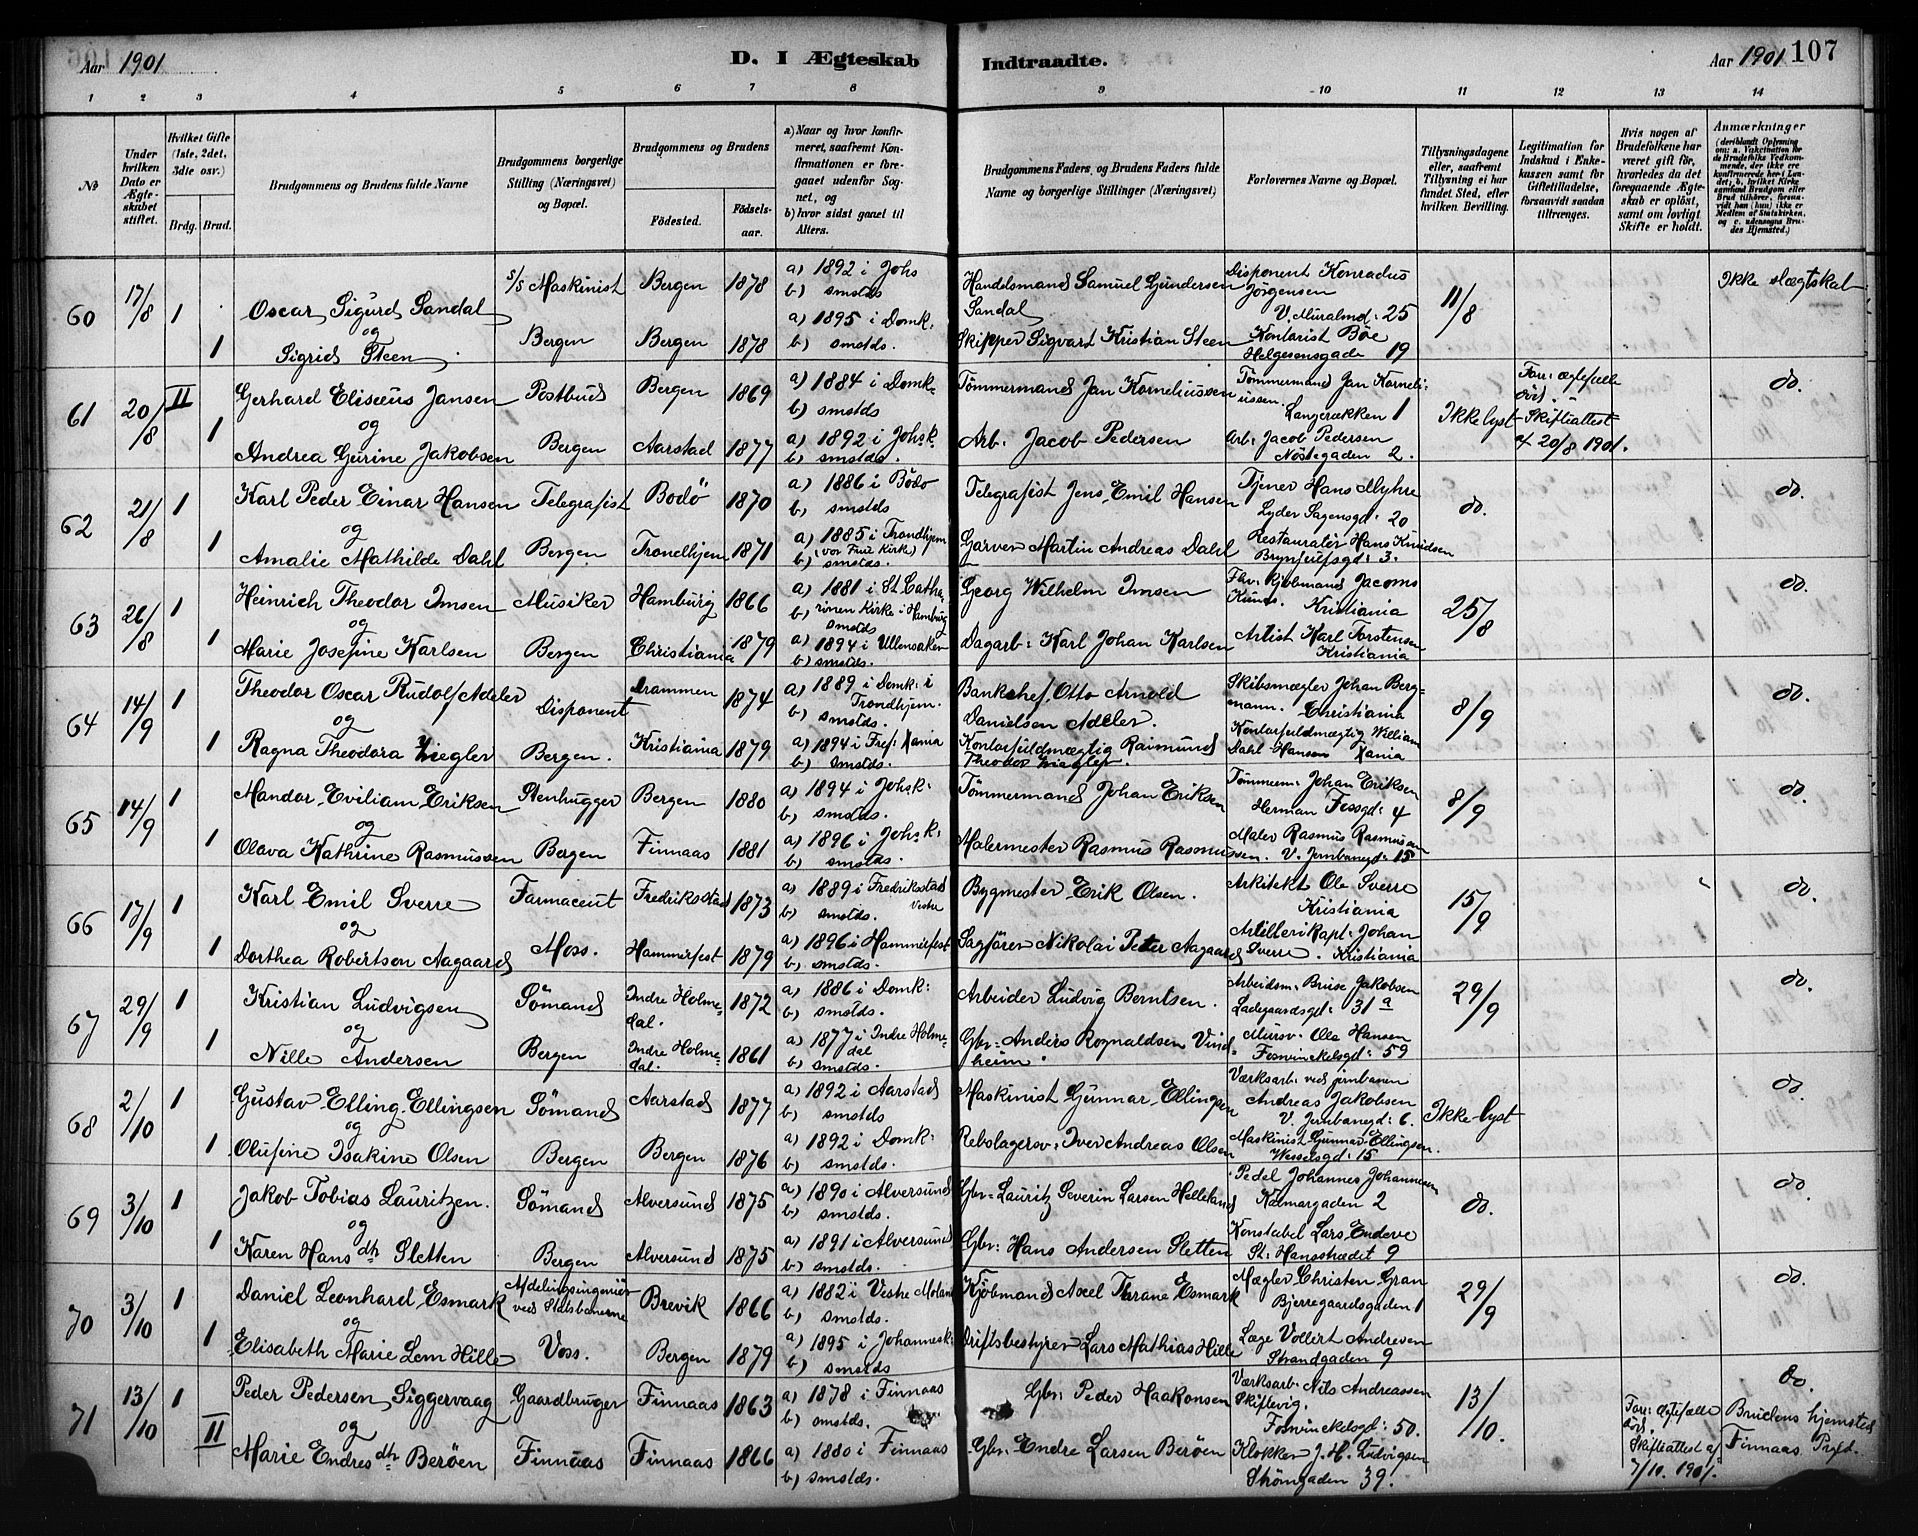 Aar 1901
D. I Ægteskab Indtraadte.
Aar 1901 107
1 2 3 4 5 6 7 8 9 10 11 12 13 14
No
Under hvilken Dato er Ægteskabet stiftet.
Hvilket Gifte (1ste, 2det, 3die osv.)
Brdg. Brud.
Brudgommens og Brudens fulde Navne
Brudgommens borgerlige Stilling (Næringsvei) og Bopæl.
Brudgommens og Brudens
Födested. Födsels-aar.
a) Naar og hvor konfirmeret, saafremt Konfirmationen er foregaaet udenfor Sognet, og
b) hvor sidst gaaet til Alters.
Brudgommens Faders og Brudens Faders fulde Navne og borgerlige Stillinger (Næringsvei)
Forlovernes Navne og Bopæl.
Tillysningsdagene eller, saafremt Tillysning ei har fundet Sted, efter hvilken Bevilling.
Legitimation for Indskud i Enkekassen samt for Giftetilladelse, forsaavidt saadan tiltrænges.
Hvis nogen af Brudefolkene har været gift för, hvorledes da det foregaaende Ægteskab er oplöst, samt om lovligt Skifte er holdt.
Anmærkninger (deriblandt Oplysning om: a. Vakcination for de Brudefolks Vedkommende, der ikke ere konfirmerede her i Landet; b. hvilket Kirkesamfund Brudgom eller Brud tilhörer, forsaavidt han (hun) ikke er Medlem af Statskirken, og c. udensogns Brudes Hjemsted.)
60 17/8 1 Oscar Sigurd Sandal S/S Maskinist Bergen 1878 a) 1892 i Johs b) smstds Handelsmand Samuel Gundersen Sandal Disponent Konradus Jörgensen V. Muralmd: 25 11/8 Ikke slægtskab
og
1 Sigrid Steen Bergen Bergen 1878 a) 1895 i Domk: b) smstds. Skipper Sigvart Kristian Steen Kontorist Böe Helgesensgade 19
61 20/8 II Gerhard Elisæus Jansen Postbud Bergen 1869 a) 1884 i Domk. b) smstds Tömmermand Jan Korneliussen Tömmermand Jan Korneliussen. Langerækken 1 Ikke lyst Forr: ægtefælle död. Skifteattest af 20/8 1901. do.
og
1 Andrea Gurine Jakobsen Bergen Aarstad 1877 a) 1892 i Johsk. b) smstds. Arb: Jacob Pedersen Arb: Jacob Pedersen Nöstegaden 2.
62 21/8 1 Karl Peder Einar Hansen Telegrafist Bodö 1870 a) 1886 i Bodö b) smstds Telegrafist Jens Emil Hansen Tjener Hans Myhre Lyder Sagensgd: 20 do. do.
og
1 Amalie Mathilde Dahl Bergen. Trondhjem 1871 a) 1885 i Trondhjem (vor Frue Kirke) b) smstds. Garver Martin Andreas Dahl Restauratör Hans Knudsen Brynjulfsgd: 3.
63 26/8 1 Heinrich Theodor Imsen Musiker Hamburg 1866 a) 1881 i St. Catharinen Kirke i Hamburg b) smstds Georg Wilhelm Imsen Fhv: Kjöbmand Jacoms Kunds. Kristiania 25/8 do.
og
1 Marie Josefine Karlsen Bergen Christiania 1879 a) 1894 i Ullensaker b) smstds. Dagarb: Karl Johan Karlsen Artist Karl Torstensen Kristiania
64 14/9 1 Theodor Oscar Rudolf Adeler Disponent Drammen 1874 a) 1889 i Domk: i Trondhjem. b) smstds. Bankchef Otto Arnold Danielsen Adeler. Skibsmægler Johan Bergmann. Christiania 8/9 do.
og
1 Ragna Theodora Ziegler Bergen. Kristiania 1879 a) 1894 i Fref: Xania b) smstds. Kontorfuldmægtig Raimund Theodor Ziegler. Kontorfuldmægtig William Dahl Hansen Xania
65 14/9 1 Mandor Eviliam Eriksen Stenhugger Bergen 1880 a) 1894 i Johsk: b) smstds. Tömmermand Johan Eriksen Tömmerm: Johan Eriksen Herman Fossgd: 4 8/9 do.
og
1 Olava Kathrine Rasmussen Bergen Finnaas 1881 a) 1896 i Johsk: b) smstds. Malermester Rasmus Rasmussen. Maler Rasmus Rasmussen V. Jernbanegd: 15
66 17/9 1 Karl Emil Sverre Farmaceut Fredriksstad 1873 a) 1889 i Fredriksstad Vestre b) smstds. Bygmester Erik Olsen. Arkitekt Ole Sverre Kristiania 15/9 do.
og
1 Dorthea Robertson Aagaard Moss. Hammerfest 1879 a) 1896 i Hammerfest b) smstds. Sagförer Nikolai Peter Aagaard Artillerikapt: Johan Sverre. Kristiania
67 29/9 1 Kristian Ludvigsen Sömand Indre Holmedal. 1872 a) 1886 i Domk: b) smstds. Arbeider Ludvig Berntsen. Arbeidsm: Bruse Jakobsen Ladegaardsgd: 31 a 29/9 do.
og
1 Nille Andersen Bergen Indre Holmedal. 1861 a) 1877 i Indre Holmedal b) smstds. Gbr: Anders Rognaldsen Vindheim. Mursv: Ole Hansen Fosvinckelsgd: 59
68 2/10 1 Gustav Elling Ellingsen Sömand Aarstad 1877 a) 1892 i Aarstad b) smstds Maskinist Gunnar Ellingsen Værksarb: ved jernbanen Andreas Jakobsen V. Jernbanegd: 6. Ikke lyst do.
og
1 Olufine Isakine Olsen Bergen Bergen 1876 a) 1892 i Domk: b) smstds. Rebslagersv: Iver Andreas Olsen Maskinist Gunnar Ellingsen. Wesselsgd: 15
69 3/10 1 Jakob Tobias Lauritzen. Sömand Alversund 1875 a) 1890 i Alversund b) smstds. Gbr: Lauritz Severin Larsen Helleland Pedel Johannes Johannesen Kalmargaden 2 do. do.
og
1 Karen Hansdtr Sletten Bergen Alversund 1875 a) 1891 i Alversund b) smstds. Gbr: Hans Andersen Sletten Konstabel Lars Endeve St: Hansstrædet 9
70 3/10 1 Daniel Leonhard Esmark Afdelingsingeniör ved Statsbanerne Brevik 1866 a) 1882 i Vestre Moland b) smstds. Kjöbmand Axel Thrane Esmark Mægler Christen Gran Bjerregaardsgaden 1 29/9 do.
og
1 Elisabeth Marie Lem Hille Voss. Bergen 1879 a) 1895 i Johannesk: b) smstds Driftsbestyrer Lars Mathias Hille Læge Vollert Andresen Strandgaden 9
71 13/10 1 Peder Pedersen Siggervaag Gaardbruger Finnaas 1863 a) 1878 i Finnaas b) smstds. Gbr: Peder Haakonsen Værksarb: Nils Andreassen Skiftevig. Fosvinckelsgd: 50. 13/10. Forr: ægtefælle död. Skifteattest af 7/10. 1901. do. Brudens hjemsted Finnaas Prgld.
og
II Marie Endresdtr Beröen Finnaas Finnaas 1866 a) 1880 i Finnaas b) smstds. Gbr: Endre Larsen Beröen Klokker J. H. Ludvigsen Strömgaden 39.